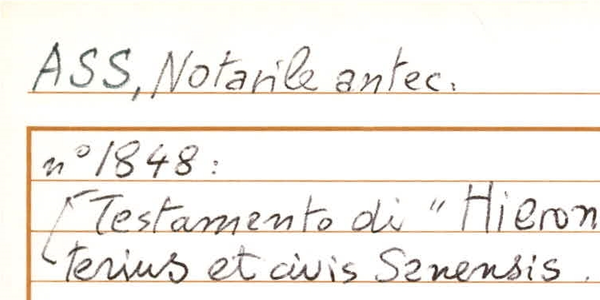 ASS, Notarile antec.
n° 1848:
Testamento di "Hieron
terius et civis Senensis.